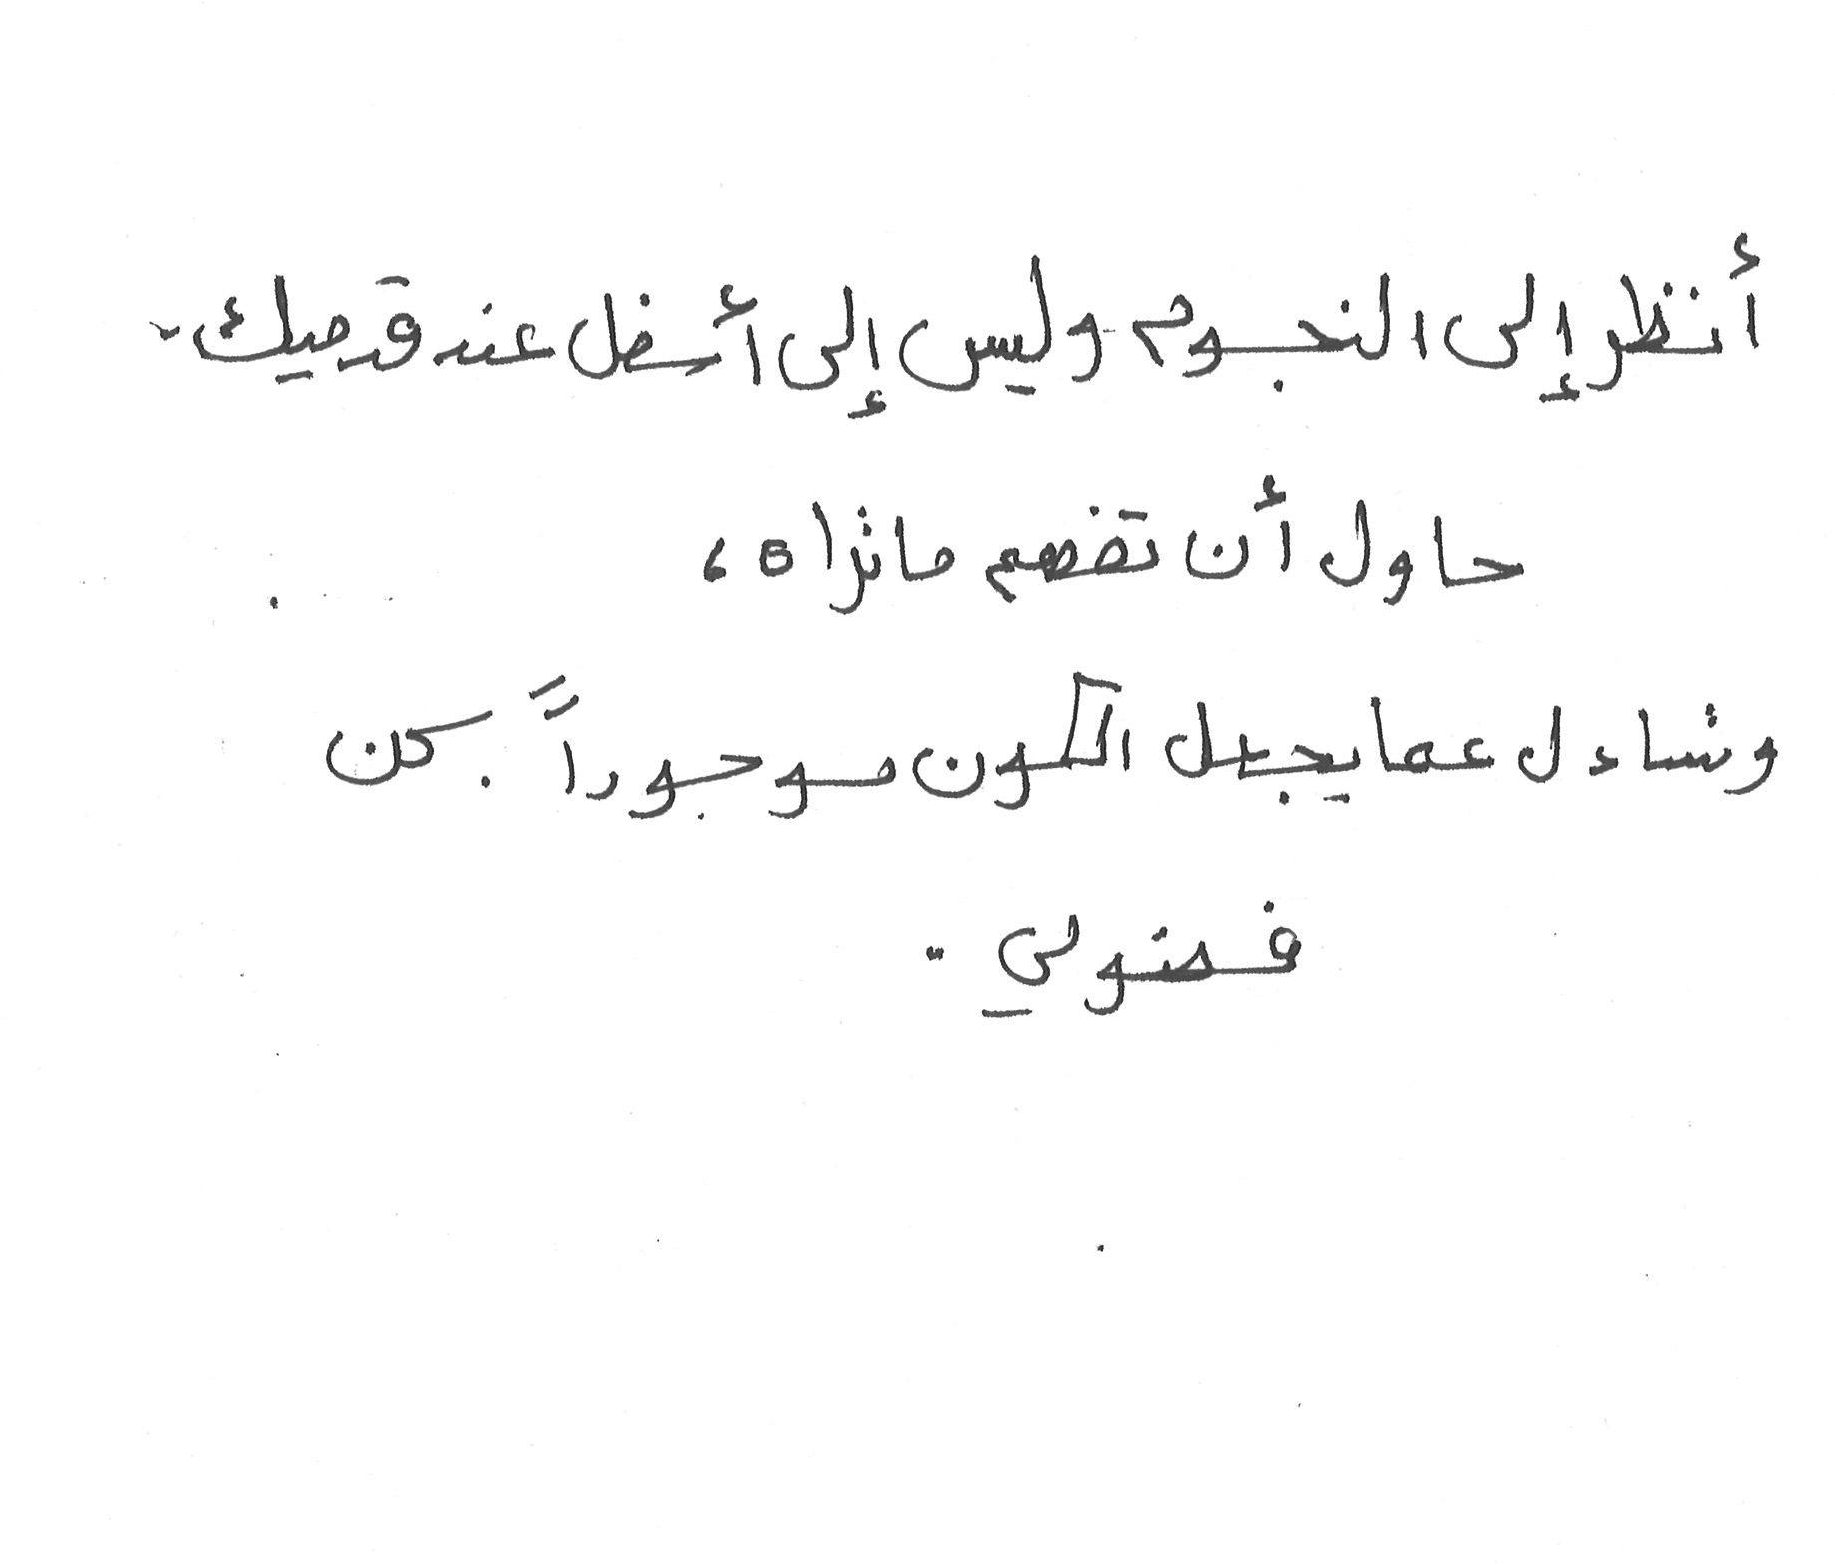 أنظر إلى النجوم وليس إلى أسفل عند قدميك.
حاول أن تفهم ماتراه،
وتساءل عما يجعل الكون موجوداً. كن
فضولي.